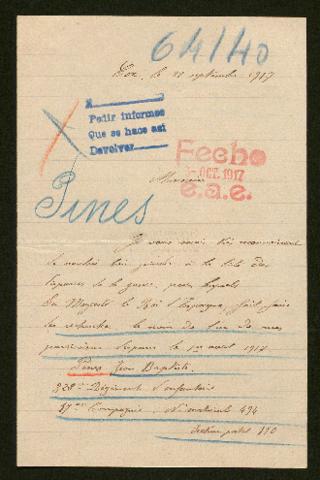 64/40
le 28 septembre 1917
Pedir informes
Que se hace así
Devolver
Fecho
OCT. 1917
e.a.e.
Monsieur
Pines
Je vous serai très reconnaissant
de vouloir bien joindre à la liste des
disparus de la guerre, pour lesquels
Sa Majesté le Roi d'Espagne, fait faire
les recherches le nom de l'un de mes
disparu le 1er août 1917
Pines Jean Baptiste
Régiment d'infanterie
17me Compagnie - Matricule 494
Secteur postal 190